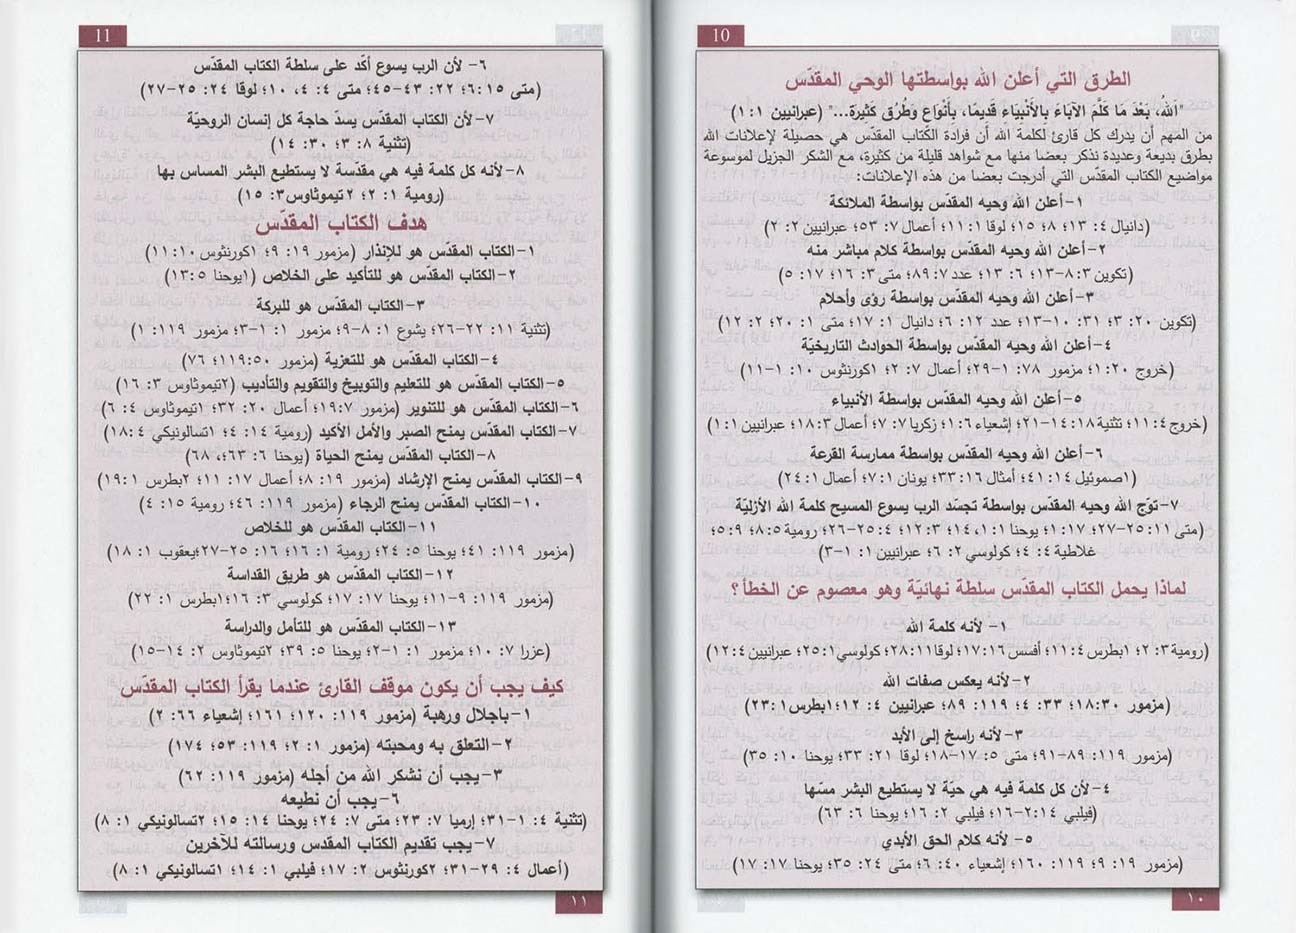 10
الطرق التي أعلن الله بواسطتها الوحي المقدّس
"اَللهُ، بَعْدَ مَا كَلَّمَ الآبَاءَ بِالأَنْبِيَاءِ قَدِيمًا، بِأَنْوَاعٍ وَطُرُق كَثِيرَة..." (عبرانيين ١: ١)
من المهم أن يدرك كل قارئ لكلمة الله أن فرادة الكتاب المقدّس هي حصيلة لإعلانات الله
بطرق بديعة وعديدة نذكر بعضا منها مع شواهد قليلة من كثيرة، مع الشكر الجزيل لموسوعة
مواضيع الكتاب المقدّس التي أدرجت بعضا من هذه الإعلانات:
١- أعلن الله وحيه المقدّس بواسطة الملائكة
(دانيال ٤: ١٣؛ ٨: ١٥؛ لوقا ١: ١١؛ أعمال ٧: ٥٣؛ عبرانيين ٢: ٢)
٢- أعلن الله وحيه المقدّس بواسطة كلام مباشر منه
(تكوين ٣: ٨-١٣؛ ٦: ١٣؛ عدد ٧: ٨٩؛ متى ٣: ١٦؛ ١٧: ٥)
٣- أعلن الله وحيه المقدّس بواسطة رؤى وأحلام
(تكوين ٢٠: ٣؛ ٣١: ١٠-١٣؛ عدد ١٢: ٦؛ دانيال ١: ١٧؛ متى ١: ٢٠؛ ٢: ١٢)
٤- أعلن الله وحيه المقدّس بواسطة الحوادث التاريخيّة
(خروج ٢٠: ١؛ مزمور ٧٨: ١-٢٩؛ أعمال ٧: ٢؛ ١كورنثوس ١٠: ١-١١)
٥- أعلن الله وحيه المقدّس بواسطة الأنبياء
(خروج ٤: ١١؛ تثنية ١٨: ١٤-٢١؛ إشعياء ٦: ١؛ زكريا ٧: ٧؛ أعمال ٣: ١٨؛ عبرانيين ١: ١)
٦- أعلن الله وحيه المقدّس بواسطة ممارسة القرعة
(١صموئيل ١٤: ٤١؛ أمثال ١٦: ٣٣؛ يونان ١: ٧؛ أعمال ١: ٢٤)
٧- توّج الله وحيه المقدّس بواسطة تجسّد الرب يسوع المسيح كلمة الله الأزليّة
(متى ١١: ٢٥-٢٧؛ ١٧: ١؛ يوحنا ١: ١، ١٤؛ ٣: ١٢؛ ٤: ٢٥-٢٦؛ رومية ٥: ٨؛ ٩: ٥؛
غلاطية ٤: ٤؛ كولوسي ٢: ٦؛ عبرانيين ١: ١-٣)
لماذا يحمل الكتاب المقدّس سلطة نهائيّة وهو معصوم عن الخطأ؟
١- لأنه كلمة الله
(رومية ٣: ٢؛ ١بطرس ٤: ١١؛ أفسس ٦: ١٧؛ لوقا ١١: ٢٨؛ كولوسي ١: ٢٥؛ عبرانيين ٤: ١٢)
٢- لأنه يعكس صفات الله
(مزمور ١٨: ٣٠؛ ٣٣: ٤؛ ١١٩: ٨٩؛ عبرانيين ٤: ١٢؛ ١بطرس ١: ٢٣)
٣- لأنه راسخ إلى الأبد
(مزمور ١١٩: ٨٩-٩١؛ متى ٥: ١٧-١٨؛ لوقا ٢١: ٣٣؛ يوحنا ١٠: ٣٥)
٤- لأن كل كلمة فيه هي حيّة لا يستطيع البشر مسّها
(فيلبي ٢: ١٤-١٦؛ فيلبي ٢: ١٦؛ يوحنا ٦: ٦٣)
٥- لأنه كلام الحق الأبدي
(مزمور ١٩: ٩؛ ١١٩: ١٦٠؛ إشعياء ٤٠: ٦؛ متى ٢٤: ٣٥؛ يوحنا ١٧: ١٧)
١٠
11
٦- لأن الرب يسوع أكّد على سلطة الكتاب المقدّس
(متى ١٥: ٦؛ ٢٢: ٤٣-٤٥؛ متى ٤: ٤، ١٠؛ لوقا ٢٤: ٢٥-٢٧)
٧- لأن الكتاب المقدّس يسدّ حاجة كل إنسان الروحيّة
(تثنية ٨: ٣؛ ٣٠: ١٤)
٨- لأنه كل كلمة فيه هي مقدسة لا يستطيع البشر المساس بها
(رومية ١: ٢؛ ٢ تيموثاوس٣: ١٥)
هدف الكتاب المقدّس
١- الكتاب المقدّس هو للإنذار (مزمور ١٩: ٩؛ ١كورنثوس ١٠: ١١)
٢- الكتاب المقدّس هو للتأكيد على الخلاص (١يوحنا ٥: ١٣)
٣- الكتاب المقدّس هو للبركة
(تثنية ١١: ٢٢-٢٦؛ يشوع ١: ٨-٩؛ مزمور ١: ١-٣؛ مزمور ١١٩: ١)
٤- الكتاب المقدّس هو للتعزية (مزمور ١١٩: ٥٠؛ ٧٦)
٥- الكتاب المقدّس هو للتعليم والتوبيخ والتقويم والتأديب (٢تيموثاوس ٣: ١٦)
٦- الكتاب المقدّس هو للتنوير (مزمور ١٩: ٧؛ أعمال ٢٠: ٣٢؛ ١تيموثاوس ٤: ٦)
٧- الكتاب المقدّس يمنح الصبر والأمل الأكيد (رومية ١٤: ٤؛ ١تسالونيكي ٤: ١٨)
٨- الكتاب المقدّس يمنح الحياة (يوحنا ٦: ٦٣، ٦٨)
٩- الكتاب المقدّس يمنح الإرشاد (مزمور ١٩: ٨؛ أعمال ١٧: ١١؛ ٢بطرس ١: ١٩)
١٠- الكتاب المقدّس يمنح الرجاء (مزمور ١١٩: ٤٦؛ رومية ١٥: ٤)
١١- الكتاب المقدّس هو للخلاص
(مزمور ١١٩: ٤١؛ يوحنا ٥: ٢٤؛ رومية ١: ١٦؛ ١٦: ٢٥-٢٧؛ يعقوب ١: ١٨)
١٢- الكتاب المقدّس هو طريق القداسة
(مزمور ١١٩: ٩-١١؛ يوحنا ١٧: ١٧؛ كولوسي ٣: ١٦؛ ١بطرس ١: ٢٢)
١٣- الكتاب المقدّس هو للتأمل والدراسة
(عزرا ٧: ١٠؛ مزمور ١: ١-٢؛ يوحنا ٥: ٣٩؛ ٢تيموثاوس ٢: ١٤-١٥)
كيف يجب أن يكون موقف القارئ عندما يقرأ الكتاب المقدّس
١- باجلال ورهبة (مزمور ١١٩: ١٢٠؛ ١٦١؛ إشعياء ٦٦: ٢)
٢- التعلق به ومحبته (مزمور ١: ٢؛ ١١٩: ٥٣؛ ١٧٤)
٣- يجب أن نشكر الله من أجله (مزمور ١١٩: ٦٢)
٦- يجب أن نطيعه
(تثنية ٤: ١-٣١؛ إرميا ٧: ٢٣؛ متى ٧: ٢٤؛ يوحنا ١٤: ١٥؛ ٢تسالونيكي ١: ٨)
٧- يجب تقديم الكتاب المقدس ورسالته للآخرين
(أعمال ٤: ٢٩-٣١؛ ٢كورنثوس ٢: ١٧؛ فيلبي ١: ١٤؛ ١تسالونيكي ١: ٨)
١١